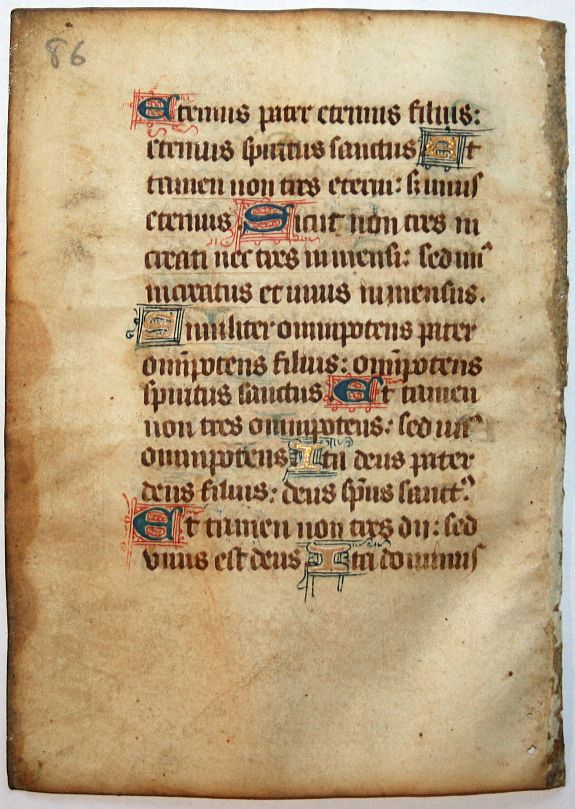 86
Eternus pater eternus filius:
eternus spiritus sanctus. Et
tamen non tres eterni: s; unus
eternus Sicut non tres in
creati nec tres inmensi: sed un᾽
increatus et unus inmensus.
Similiter omnipotens pater
omīpotens filius: omīpotens
spiritus sanctus. Et tamen
non tres omnipotens: sed un᾽
omnipotens Ita deus pater
deus filius: deus sp̄us sanct᾽.
Et tamen non tres dii: sed
vnus est deus Ita dominus